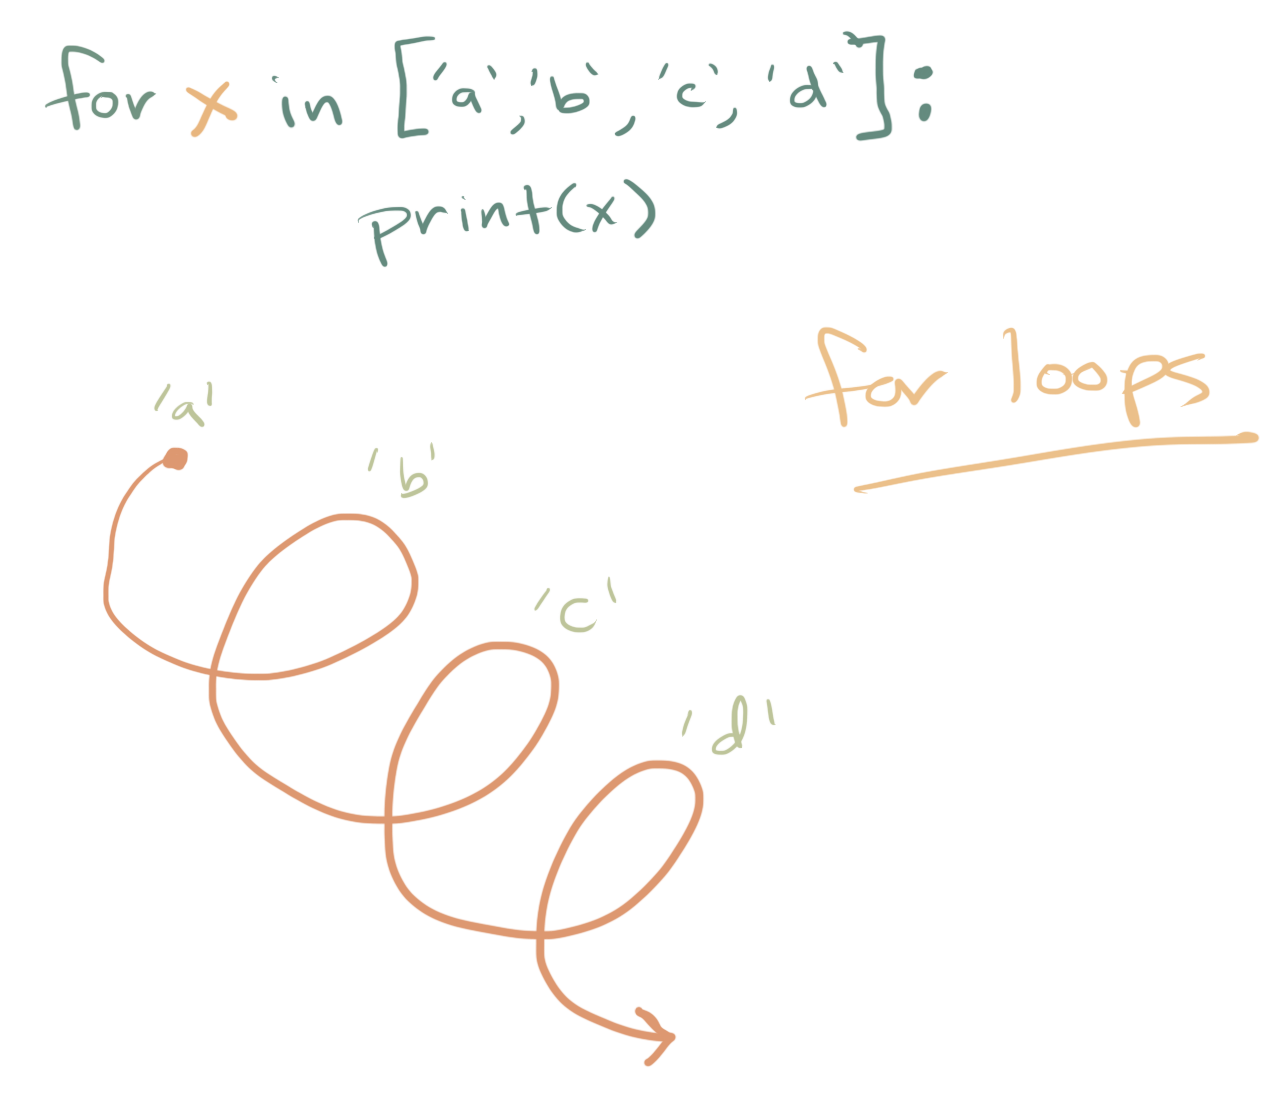 for x in ['a','b','c','d']:
print(x)
for loops
'a'
'b'
'c'
'd'